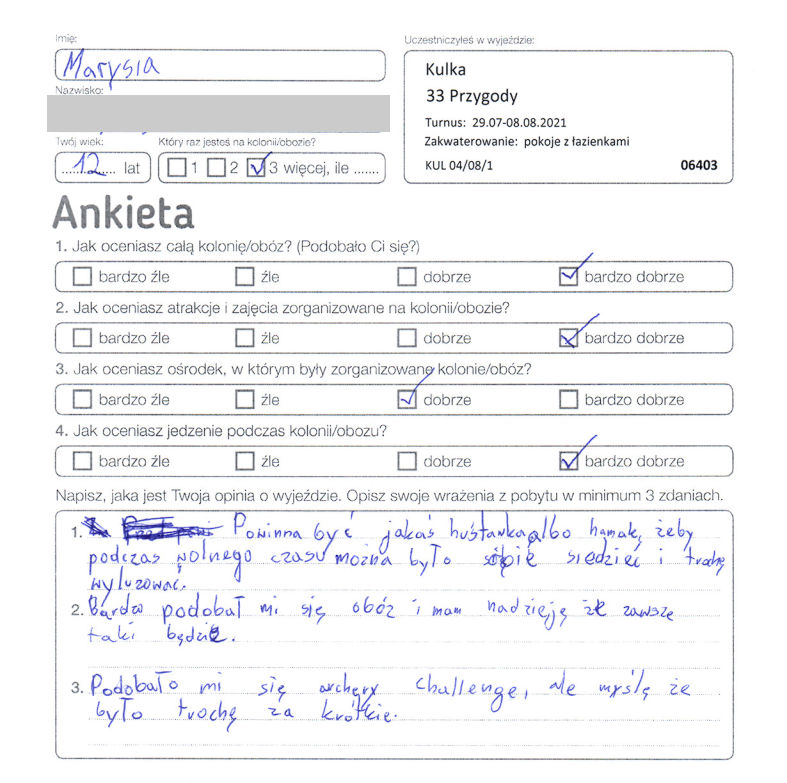 Imię:
Marysia
Uczestniczyłeś w wyjeździe:
Kulka
33 Przygody
Turnus: 29.07-08.08.2021
Zakwaterowanie: pokoje z łazienkami
KUL 04/08/1 06403
Nazwisko:
Twój wiek: Który raz jesteś na kolonii/obozie?
12 lat 1 2 3 więcej, ile .......
Ankieta
1. Jak oceniasz całą kolonię/obóz? (Podobało Ci się?)
bardzo źle źle dobrze bardzo dobrze
2. Jak oceniasz atrakcje i zajęcia zorganizowane na kolonii/obozie?
bardzo źle źle dobrze bardzo dobrze
3. Jak oceniasz ośrodek, w którym były zorganizowane kolonie/obóz?
bardzo źle źle dobrze bardzo dobrze
4. Jak oceniasz jedzenie podczas kolonii/obozu?
bardzo źle źle dobrze bardzo dobrze
Napisz, jaka jest Twoja opinia o wyjeździe. Opisz swoje wrażenia z pobytu w minimum 3 zdaniach.
1. Powinna być jakaś huśtawka albo hamak, żeby
podczas wolnego czasu można było sobie siedzieć i trochę
wyluzować.
2. Bardzo podobał mi się obóz i mam nadzieję że zawsze
taki będzie.
3. Podobało mi się archery challenge, ale myślę że
było trochę za krótkie.